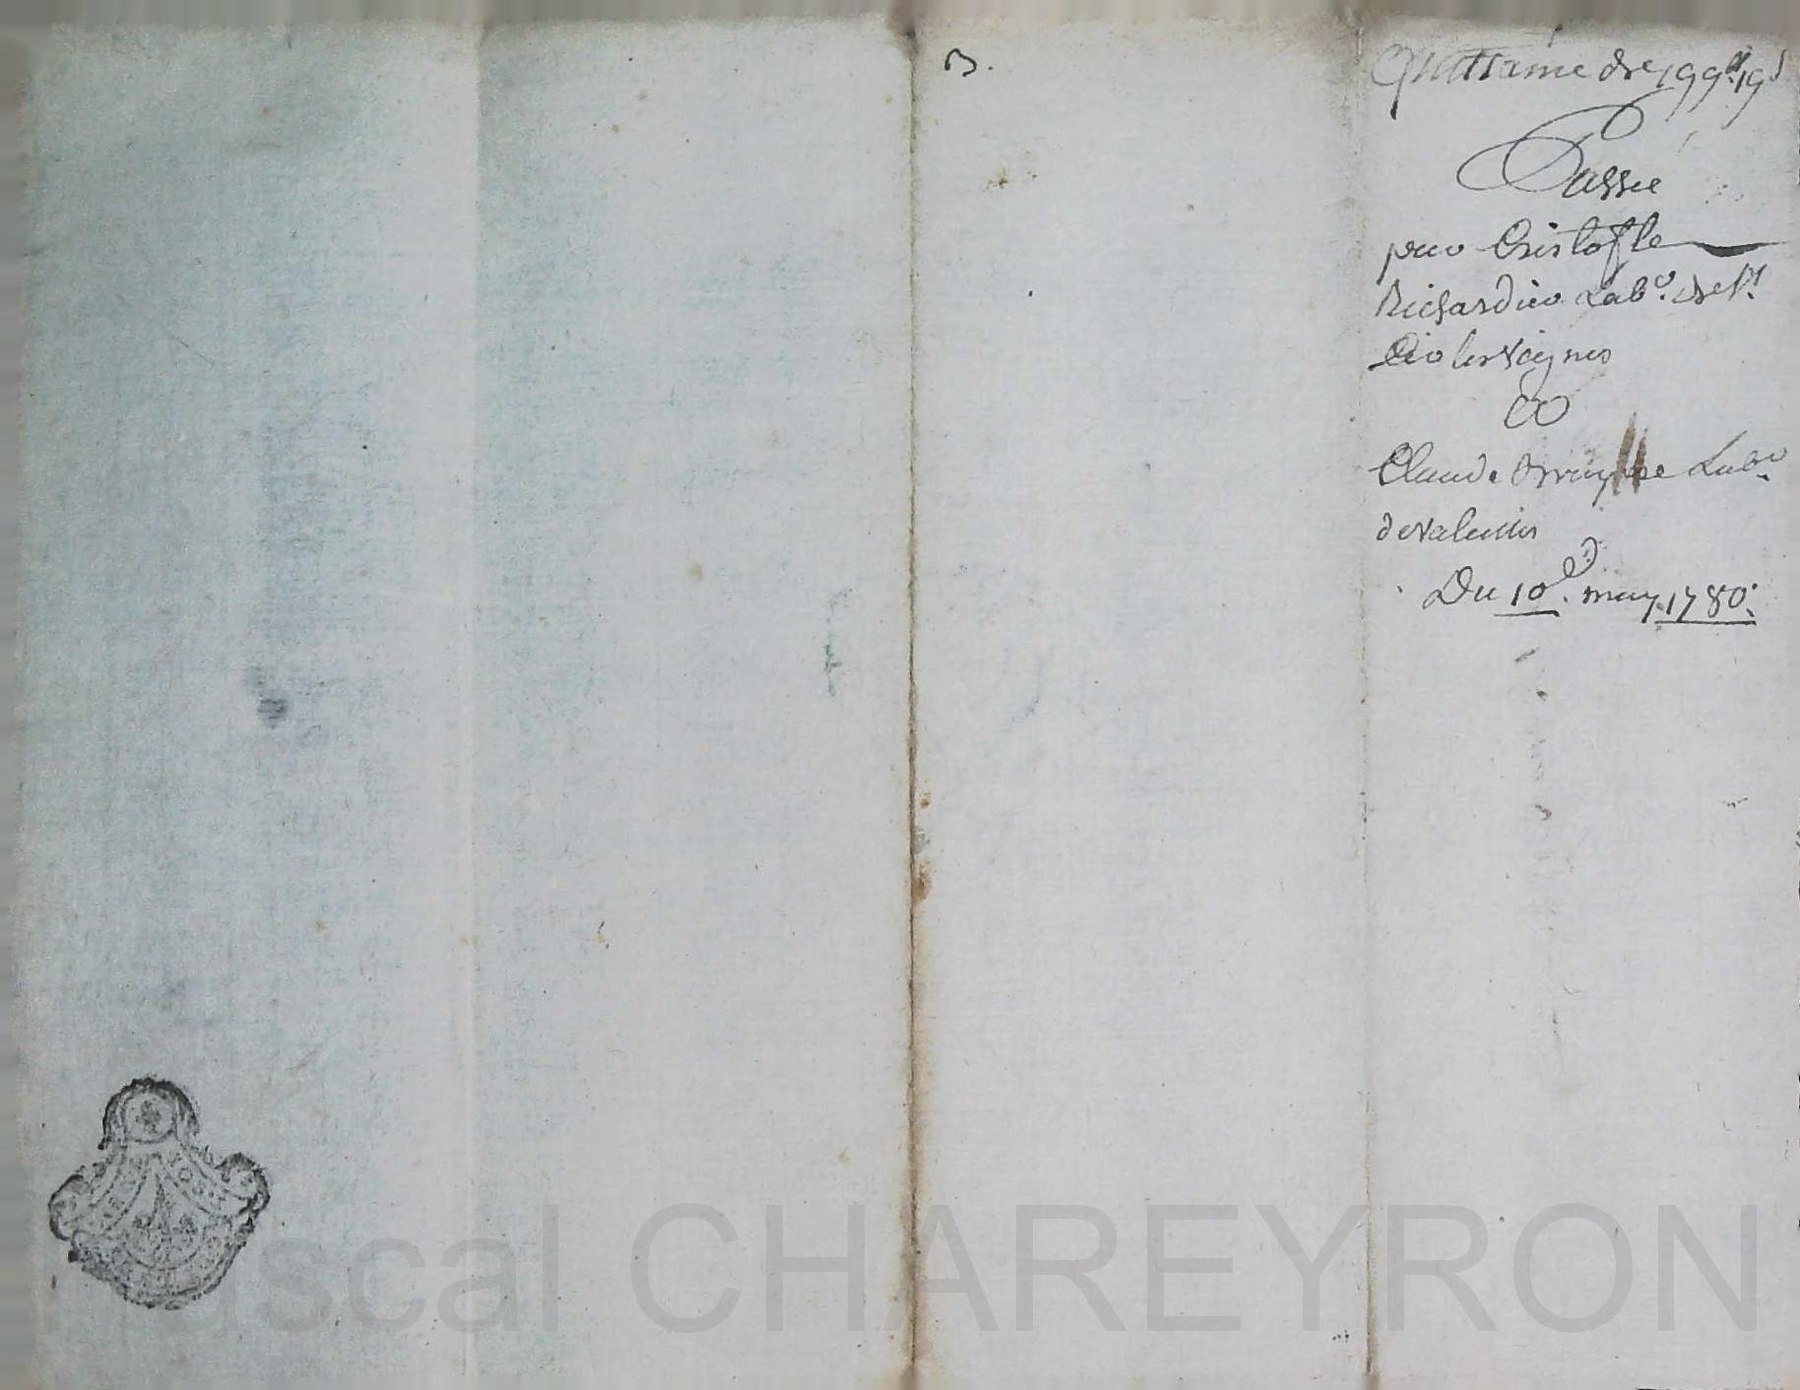 B.
Quittance de 199# 19s
Passée
par Cristofle
Richardier Labr. de St.
Cir les Vignes
à
Claude Labr.
de Valeilles
Du 10e. may 1780.
scal CHAREYRON